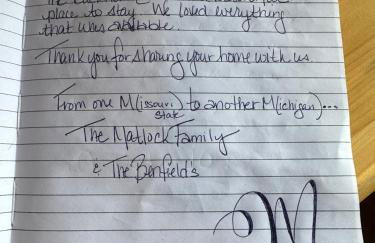 place to stay. We loved everything
that was available.
Thank you for sharing your home with us.
From one M(issouri) to another M(ichigan)...
state
The Matlock Family
& The Benfield's
M